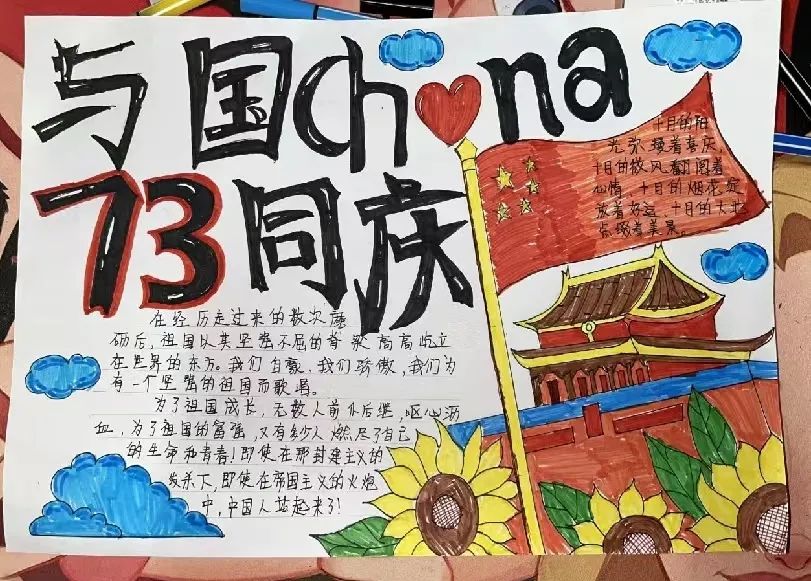 与国China
73同庆
十月的阳
光弥漫着喜庆,
十月的微风翻阅着
心情,十月的烟花绽
放着好运,十月的大地
点缀着美景。
在经历走过来的数次磨
砺后,祖国以其坚强不屈的脊梁高高屹立
在世界的东方。我们自豪,我们骄傲,我们为
有一个坚强的祖国而歌唱。
为了祖国成长,无数人前仆后继,呕心沥
血,为了祖国的富强,又有多少人燃尽了自己
的生命和青春!即使在那封建主义的
皮条下,即使在帝国主义的火炮
中,中国人站起来了!